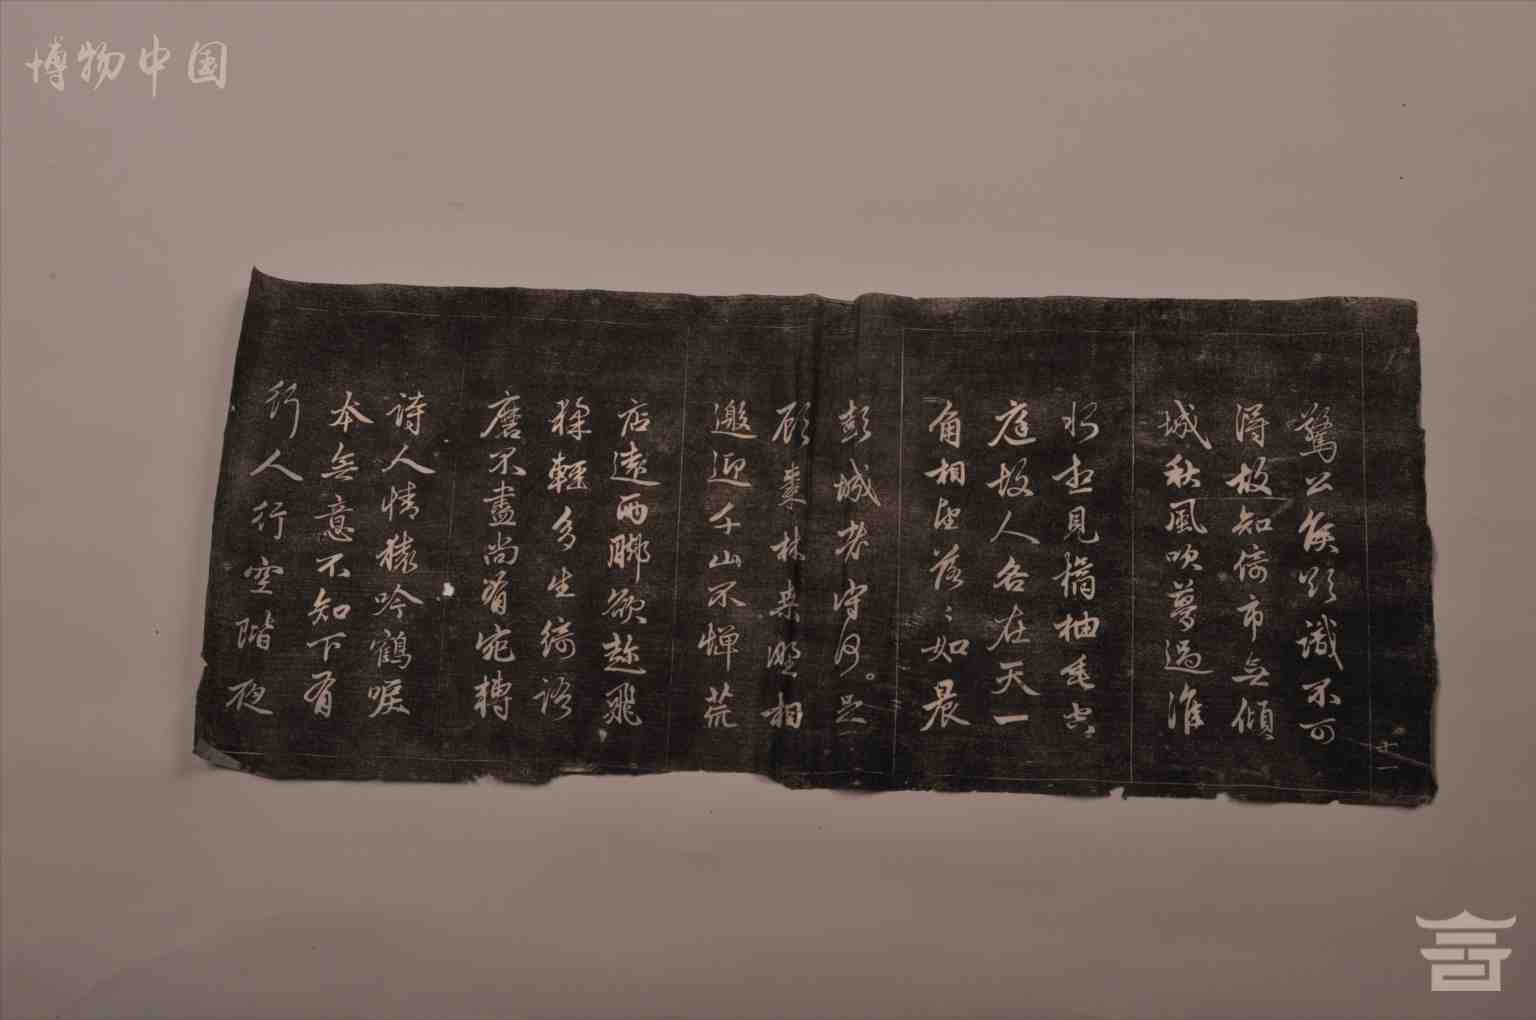 博物中国
驚公侯欲識不可
得故知倚市無傾
城秋風吹夢過淮
水想見橘柚垂空
庭故人各在天一
角相望落〻如晨
彭城老守何。足
顧棗林桑野相
邀迎千山不憚荒
店遠兩腳欲趂飛
猱輕多生綺語
磨不盡尚有宛轉
詩人情猿吟鶴唳
本無意不知下有
行人行空階夜